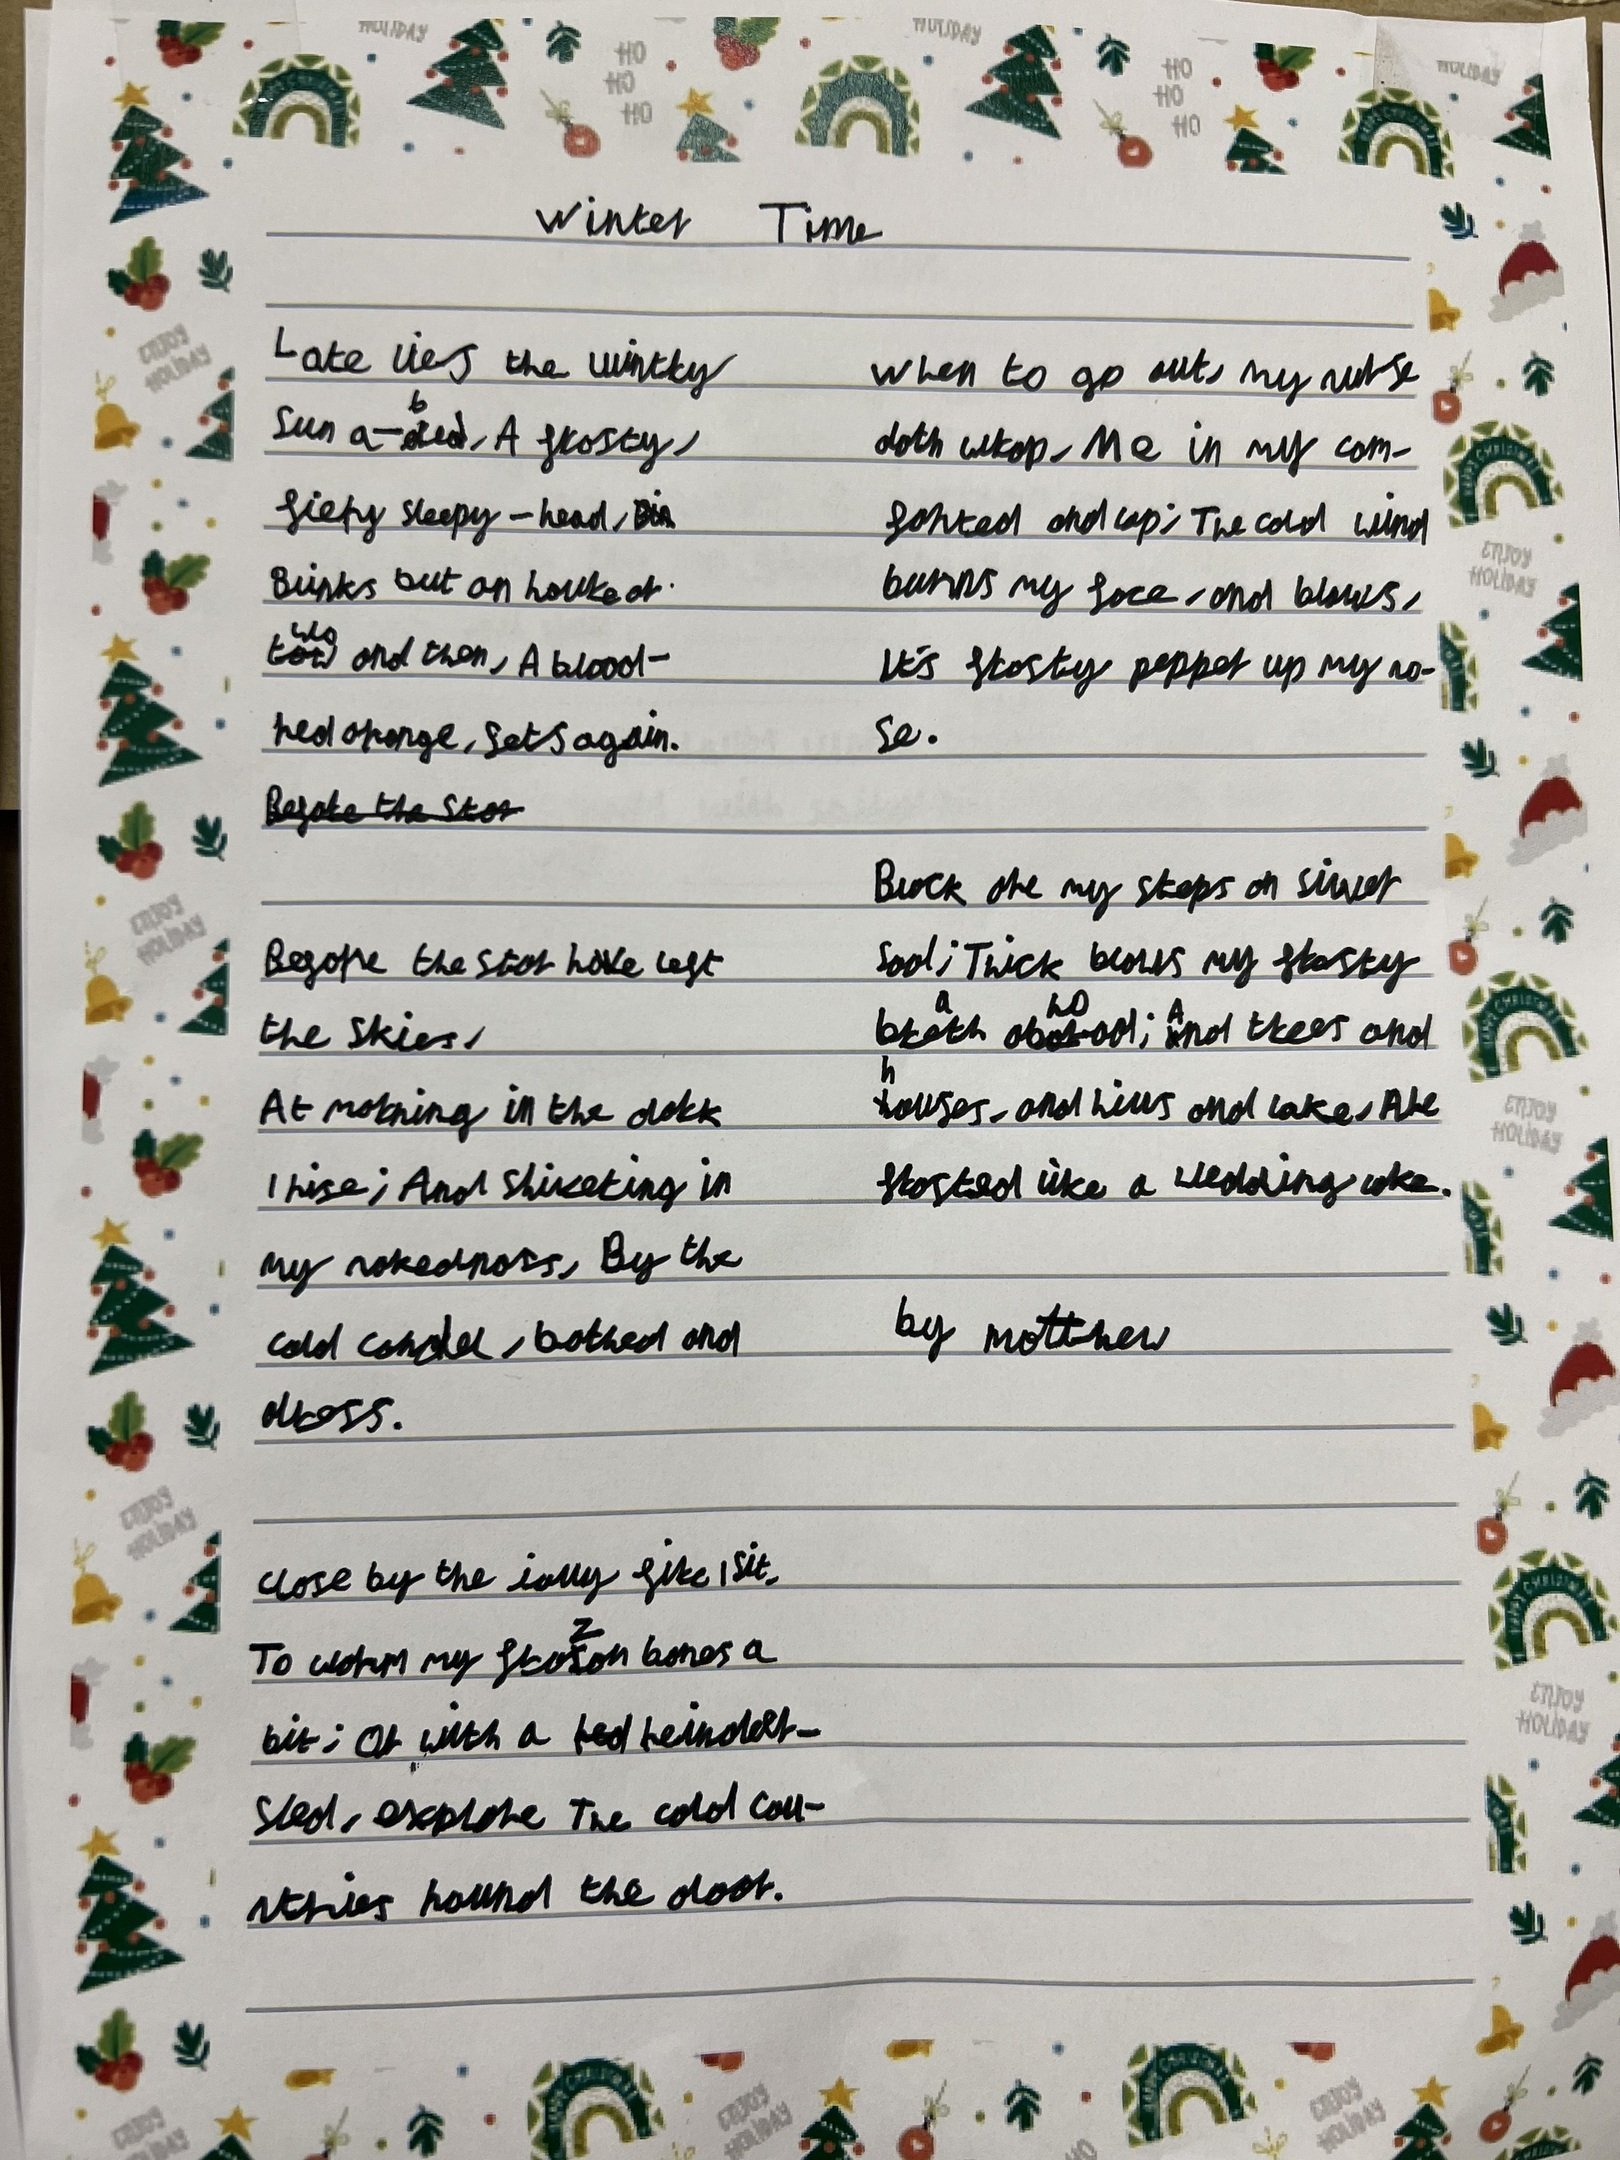 Winter Time
Late lies the wintry
Sun a-bed, A frosty,
fiery sleepy-head, Bin
Blinks but an hour or
two and then, A blood-
red orange, sets again.
Before the Star
Before the star have left
the skies,
At morning in the dark
I rise; And Shivering in
my nakedness, By the
cold candle, bathed and
dress.
Close by the jolly fire I sit,
To warm my frozon bones a
bit; Or with a red reindeer-
Sled, explore The cold cou-
ntries round the door.
When to go out, my nurse
doth wrap, Me in my com-
forted and cap; The cold wind
burns my face, and blows,
It's frosty pepper up my no-
se.
Black are my steps on silver
Sod; Thick blows my frosty
breath abroad; And trees and
houses, and hills and lake, Are
frosted like a wedding cake.
by matthew
HOLIDAY
HO
HO
HO
HOLIDAY
HO
HO
HO
HOLIDAY
ENJOY
HOLIDAY
ENJOY
HOLIDAY
ENJOY
HOLIDAY
ENJOY
HOLIDAY
ENJOY
HOLIDAY
ENJOY
HOLIDAY
ENJOY
HOLIDAY
ENJOY
HOLIDAY
ENJOY
HOLIDAY